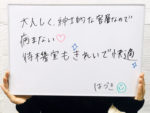 大人しく、紳士的な客層なので
病まない♡
待機室もきれいで快適
はづき